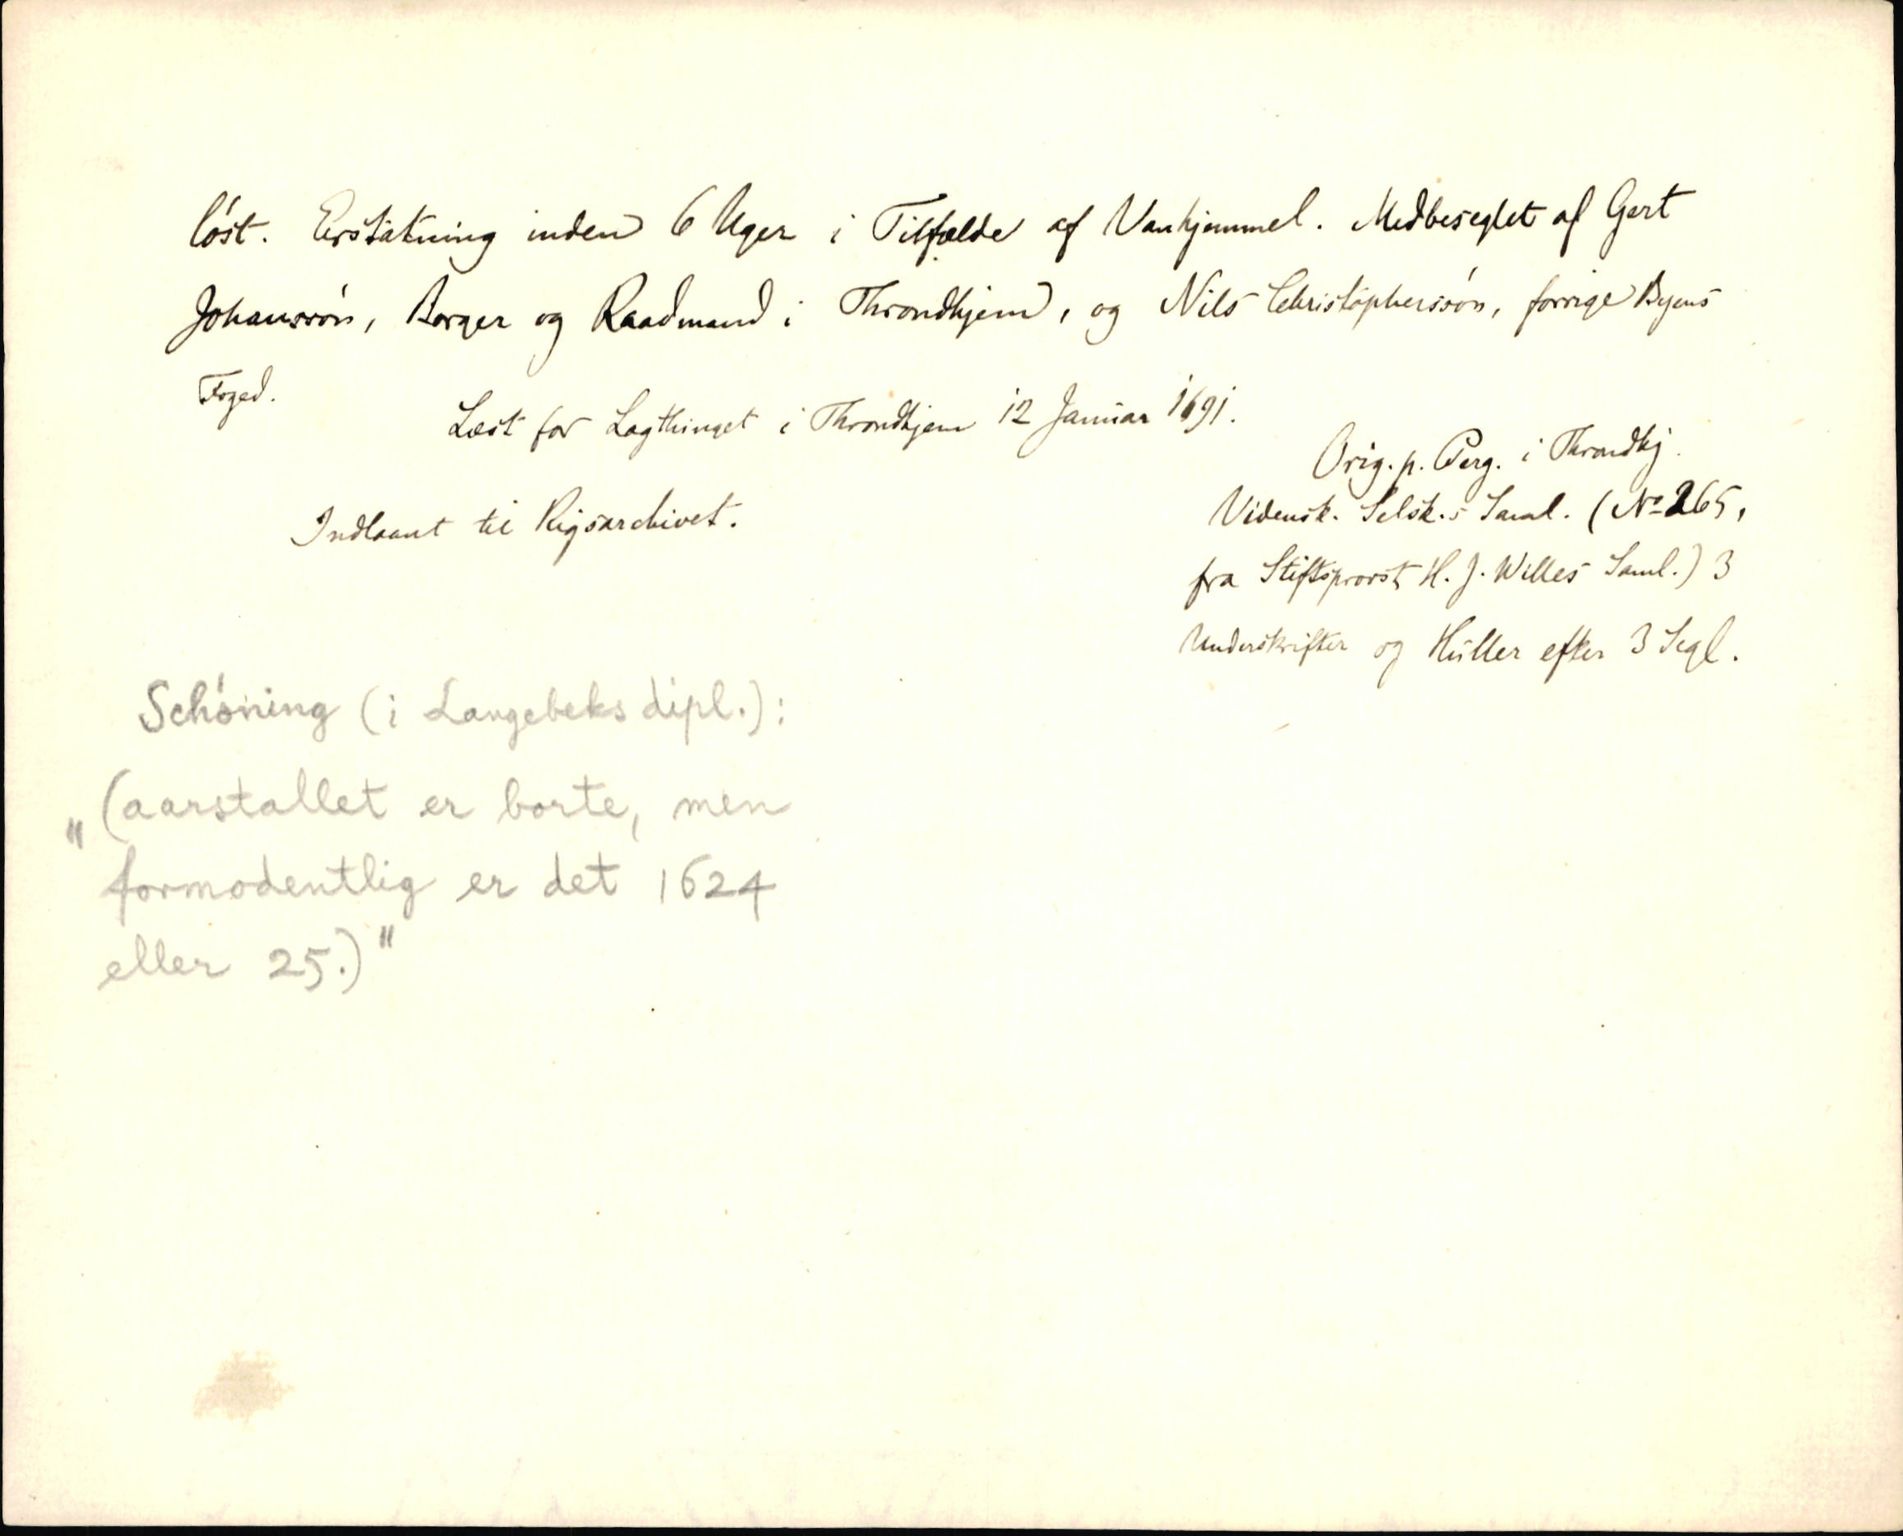 löst. Erstatning inden 6 Uger i Tilfælde af Vanhjemmel. Medbeseglet af Gert
Johanssön, Borger og Raadmand i Throndhjem, og Nils Christopherssön, forrige Byens
Foged.
Læst for Lagthinget i Throndhjem 12 Januar 1691.
Orig. p. Perg. i Throndhj.
Vidensk. Selsk.s Saml. (No 265,
fra Stiftsprovst H. J. Willes Saml.) 3
Underskrifter og Huller efter 3 Segl.
Indlaant til Rigsarchivet.
Schöning (i Langebeks dipl.):
„(aarstallet er borte, men
formodentlig er det 1624
eller 25.)"